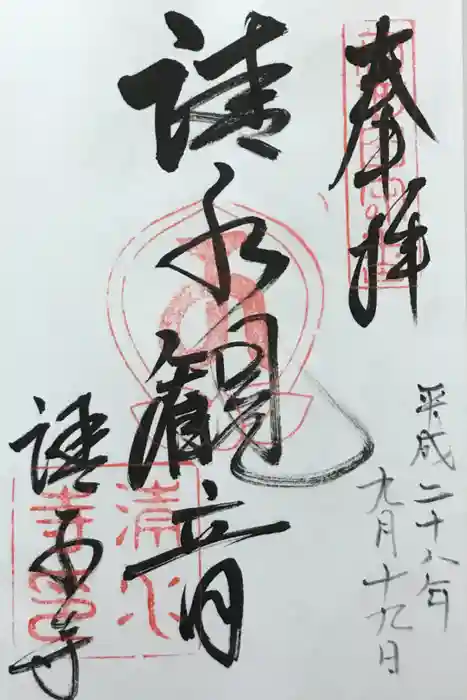 奉拝
平成二十八年
九月十九日
清水観音
清水寺